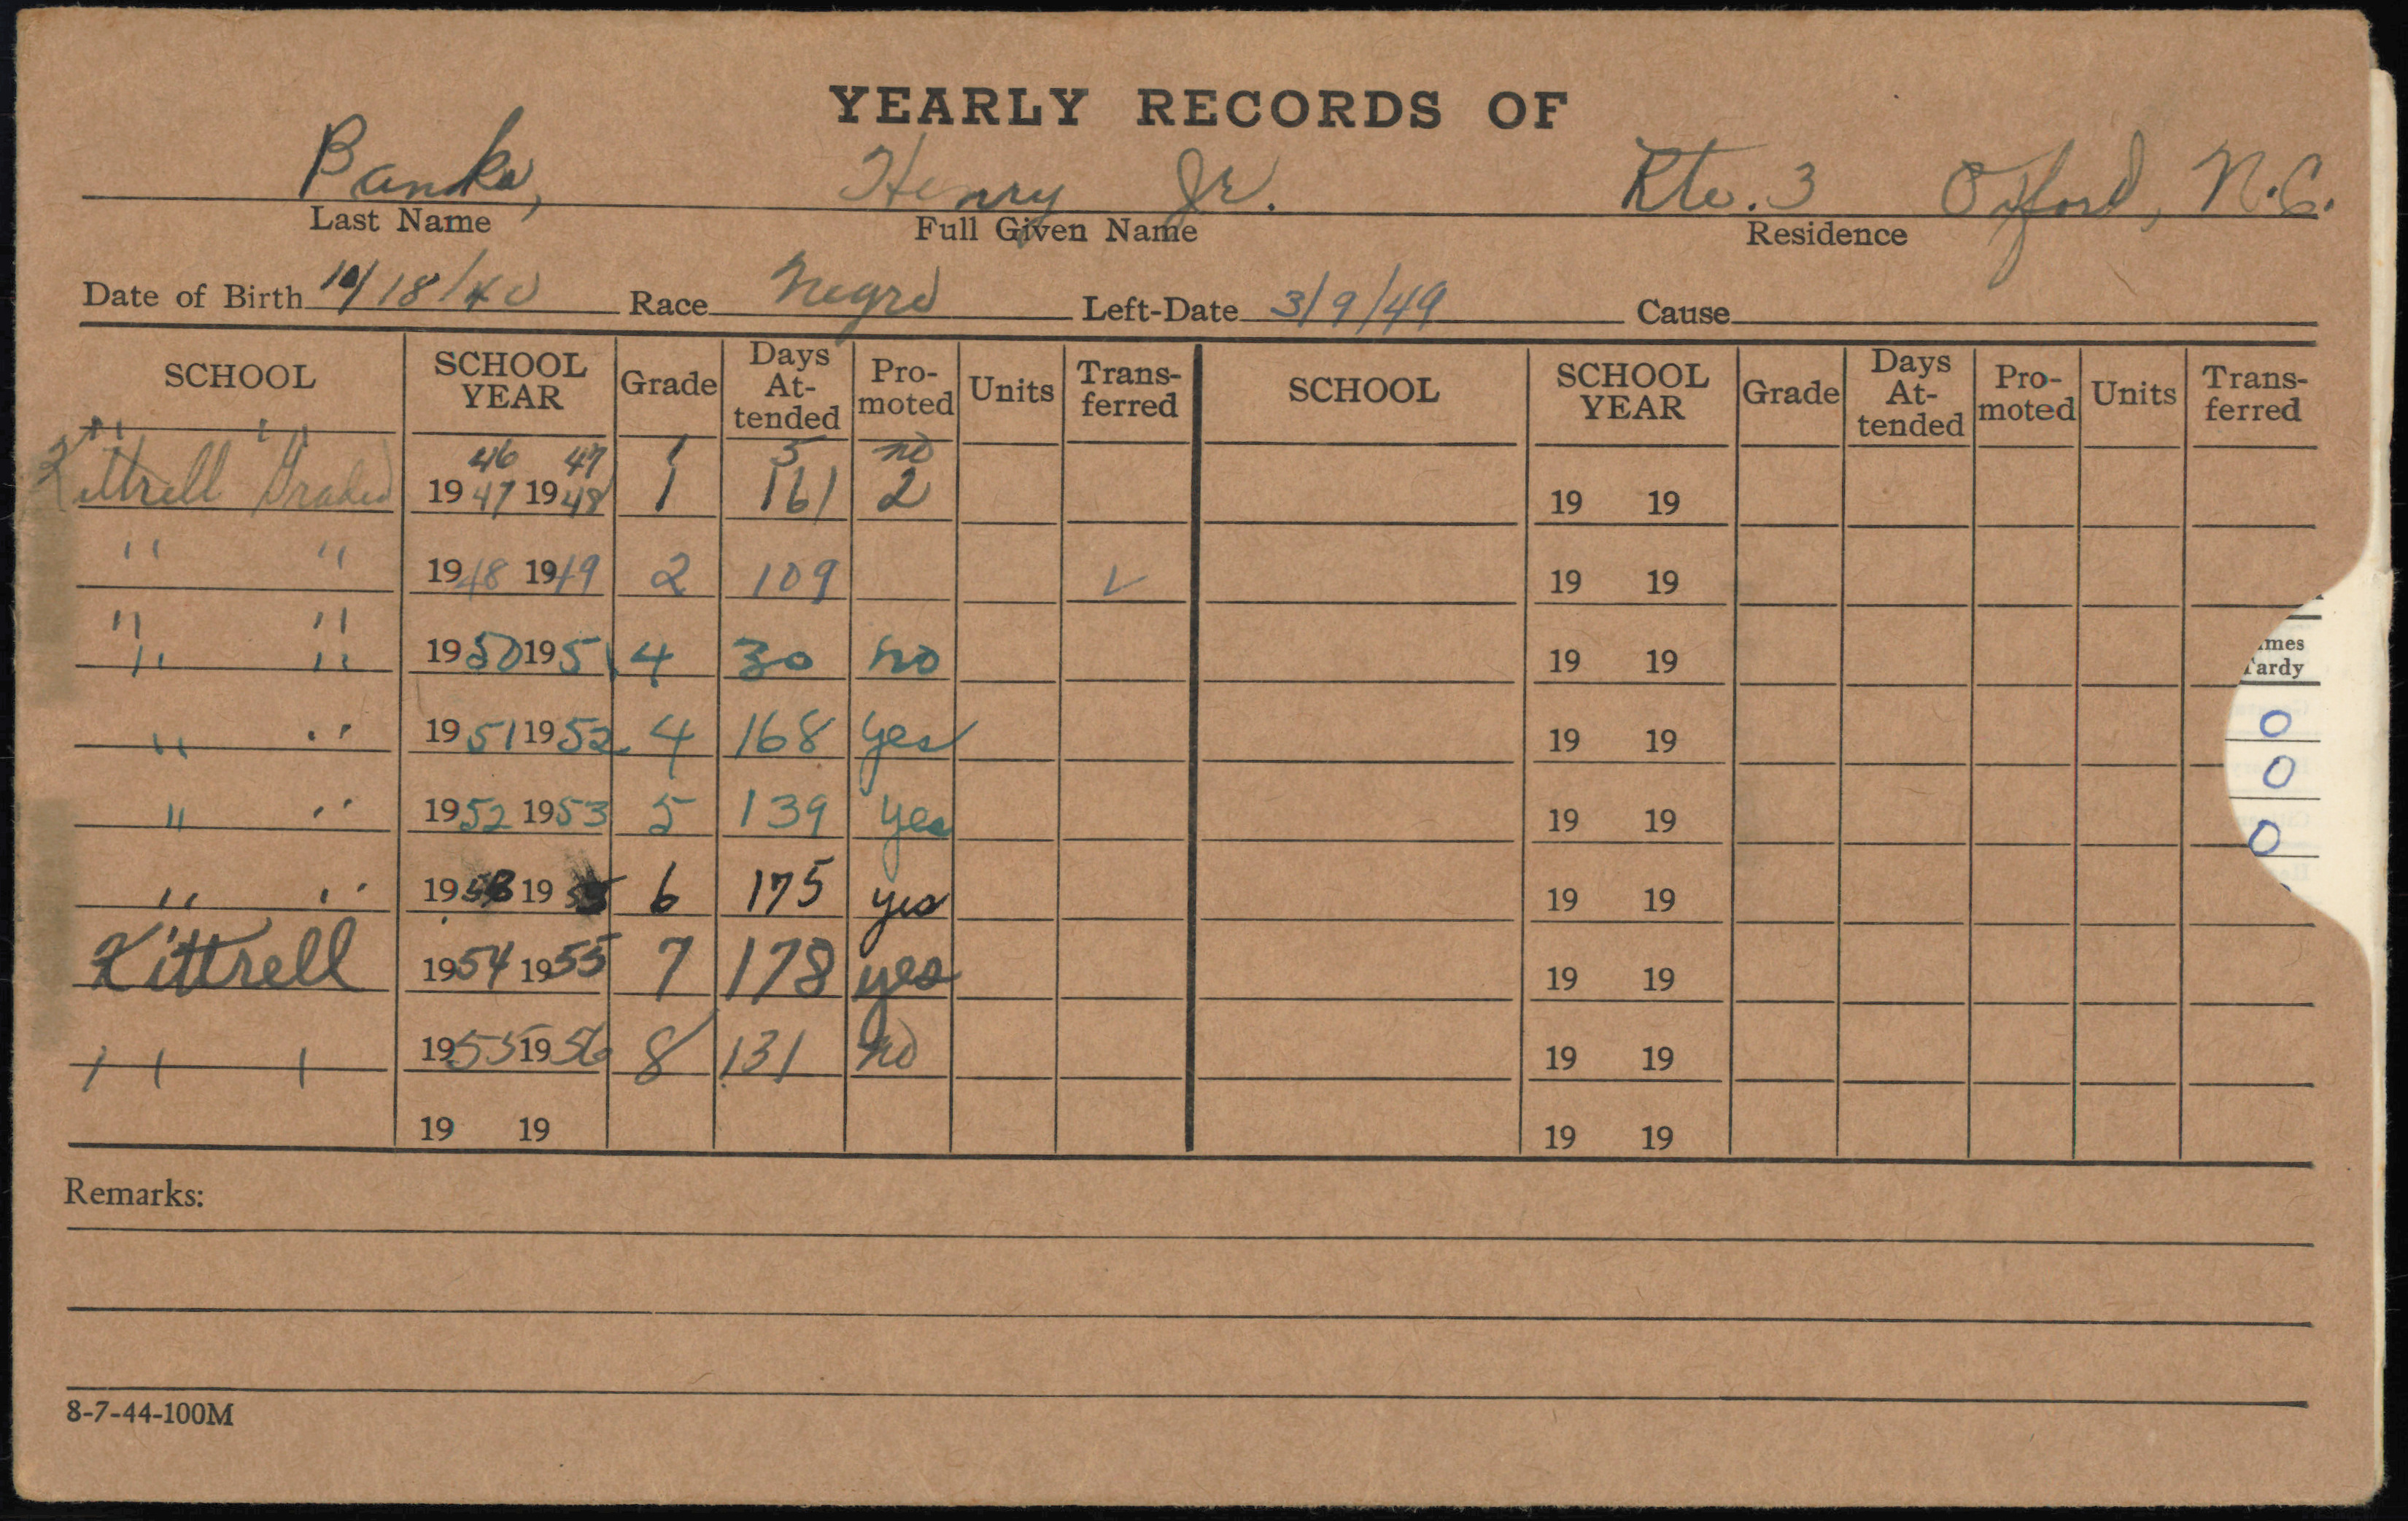 YEARLY RECORDS OF
Banks, Henry Jr. Rte. 3 Oxford, N.C.
Last Name Full Given Name Residence
Date of Birth 18/40 Race Negro Left-Date 3/9/49 Cause
SCHOOL SCHOOL YEAR Grade Days At-tended Pro-moted Units Trans-ferred SCHOOL SCHOOL YEAR Grade Days At-tended Pro-moted Units Trans-ferred
" " 46 47 1 5 no
Kittrell Graded 1947 1948 1 161 2 19 19
" " 1948 1949 2 109 ✓ 19 19
" "
" " 1950 1951 4 30 no 19 19
" " 1951 1952 4 168 yes 19 19
" " 1952 1953 5 139 yes 19 19
" " 1953 19 6 175 yes 19 19
Kittrell 1954 1955 7 178 yes 19 19
" " 1955 1956 8 131 no 19 19
19 19 19 19
Remarks:
8-7-44-100M
Tardy
0
0
0